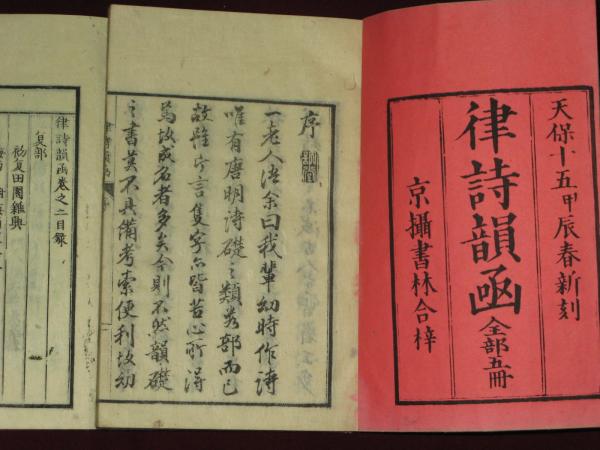 天保十五甲辰春新刻
律詩韻函 全部五冊
京攝書林合梓
序
一老人語余曰我輩幼時作詩
唯有唐明詩礎之類考部而已
故隻言隻字亦皆苦心所得
為故成名者多矣今則不然韻礎
之書莫不具備考索便利故幼
律詩韻函卷之二目錄
夏部
初夏田園雜興